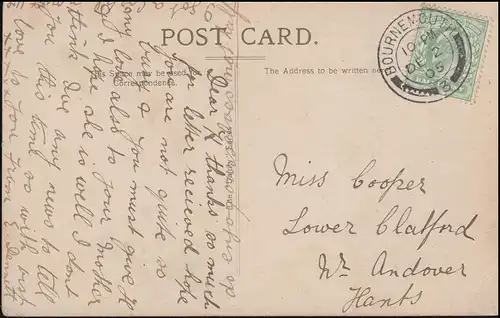 POST CARD.
This Space may be used for
Correspondence.
The Address to be written
BOURNEMOUTH
10 PM
DE 2
05
Dear K thanks so much
for letter recieved hope
you are not quite so
busy
you must give K
my love also to your Mother
& I hope she is well I dont
think Ive any news to tell
you this time so with best
love to you from E
Miss Cooper
Lower Clatford
Nr. Andover
Hants